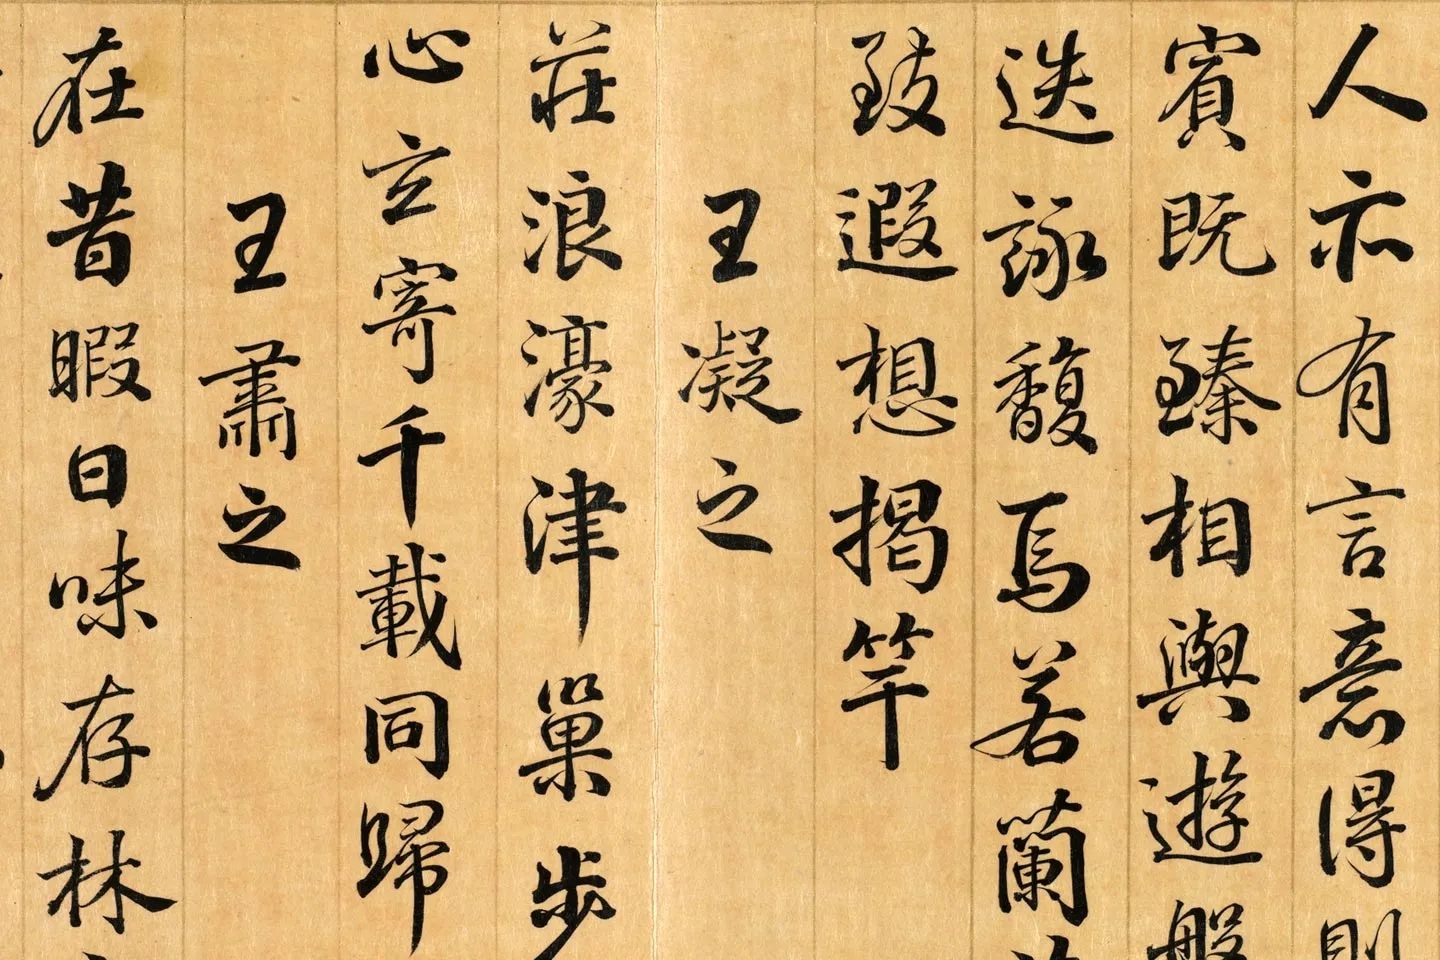 人亦有言意得則
賓既臻相與遊盤
迭詠馥焉若蘭
致遐想揭竿
王凝之
莊浪濠津巢步
心立寄千載同歸
王肅之
在昔暇日味存林